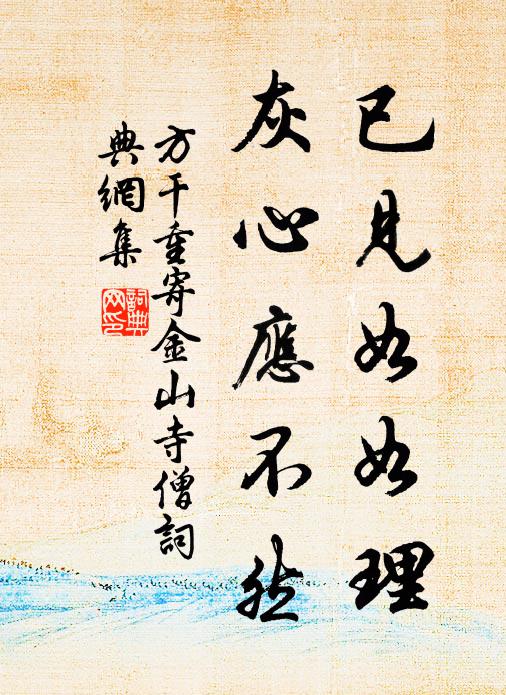 已見如如理
灰心應不然
方干重寄金山寺僧詞
典網集
詞典
网印